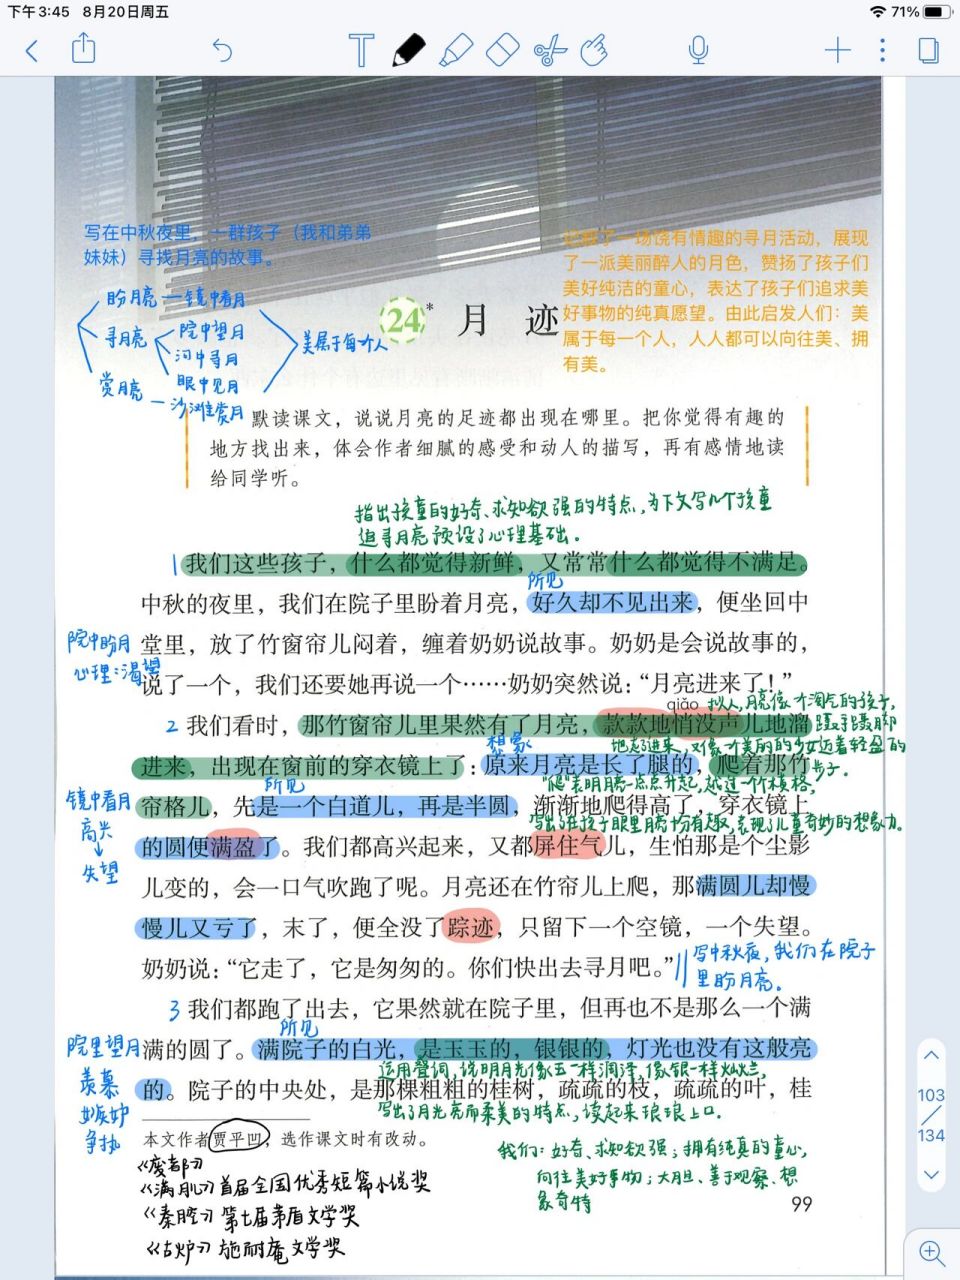 下午3:45 8月20日周五
71%
写在中秋夜里，一群孩子（我和弟弟
妹妹）寻找月亮的故事。
了一场饶有情趣的寻月活动，展现
了一派美丽醉人的月色，赞扬了孩子们
美好纯洁的童心，表达了孩子们追求美
好事物的纯真愿望。由此启发人们：美
属于每一个人，人人都可以向往美、拥
有美。
盼月亮—镜中看月
寻月亮
院中望月
河中寻月
眼中见月
赏月亮—沙滩赏月
美属于每个人
24* 月迹
默读课文，说说月亮的足迹都出现在哪里。把你觉得有趣的
地方找出来，体会作者细腻的感受和动人的描写，再有感情地读
给同学听。
指出孩童的好奇、求知欲强的特点，为下文写几个孩童
追寻月亮预设了心理基础。
1 我们这些孩子，什么都觉得新鲜，又常常什么都觉得不满足。
所见
中秋的夜里，我们在院子里盼着月亮，好久却不见出来，便坐回中
院中盼月
心理：渴望
堂里，放了竹窗帘儿闷着，缠着奶奶说故事。奶奶是会说故事的，
说了一个，我们还要她再说一个……奶奶突然说：“月亮进来了！”
qiāo
拟人，月亮像个淘气的孩子，
2 我们看时，那竹窗帘儿里果然有了月亮，款款地悄没声儿地溜
蹑手蹑脚
想象
地走进来，又像个美丽的少女迈着轻盈的
步子。
进来，出现在窗前的穿衣镜上了：原来月亮是长了腿的，爬着那竹
所见
“爬”表明月亮一点点升起，越过一个个格格，
镜中看月
高兴
失望
帘格儿，先是一个白道儿，再是半圆，渐渐地爬得高了，穿衣镜上
写出了在孩子眼里月亮十分有趣，表现了儿童奇妙的想象力。
的圆便满盈了。我们都高兴起来，又都屏住气儿，生怕那是个尘影
儿变的，会一口气吹跑了呢。月亮还在竹帘儿上爬，那满圆儿却慢
慢儿又亏了，末了，便全没了踪迹，只留下一个空镜，一个失望。
奶奶说：“它走了，它是匆匆的。你们快出去寻月吧。”
写中秋夜，我们在院子
里盼月亮。
3 我们都跑了出去，它果然就在院子里，但再也不是那么一个满
所见
院里望月
羡慕
嫉妒
争执
满的圆了。满院子的白光，是玉玉的，银银的，灯光也没有这般亮
运用叠词，说明月光像玉一样润泽，像银一样灿烂，
的。院子的中央处，是那棵粗粗的桂树，疏疏的枝，疏疏的叶，桂
写出了月光亮而柔美的特点，读起来琅琅上口。
本文作者贾平凹，选作课文时有改动。
《废都》
《满月儿》首届全国优秀短篇小说奖
《秦腔》第七届茅盾文学奖
《古炉》施耐庵文学奖
我们：好奇、求知欲强；拥有纯真的童心，
向往美好事物；大胆、善于观察、想
象奇特
99
103
134